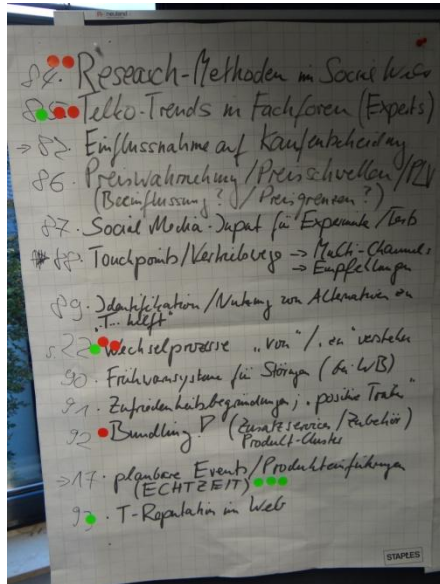 84. Research-Methoden im Social Web
85. Telko-Trends in Fachforen (Experts)
→ 82. Einflussnahme auf Kaufentscheidung
86. Preiswahrnehmung/Preisschwellen/PLV
(Beeinflussung? / Preisgrenzen?)
87. Social Media-Input für Experimente/Tests
88. Touchpoints/Vertriebswege → Multi-Channel
→ Empfehlungen
89. Identifikation/Nutzung von Alternativen zu
"T... hilft"
s. 22 Wechselprozesse "von"/"zu" verstehen
90. Frühwarnsysteme für Störungen (bei WB)
91. Zufriedenheitsbegründungen; "positive
92 Bundling! (Zusatzservices/Zubehör)
Produkt-Cluster
→ 17. planbare Events/Produkteinführungen
(ECHTZEIT)
93 T-Reputation im Web
STAPLES